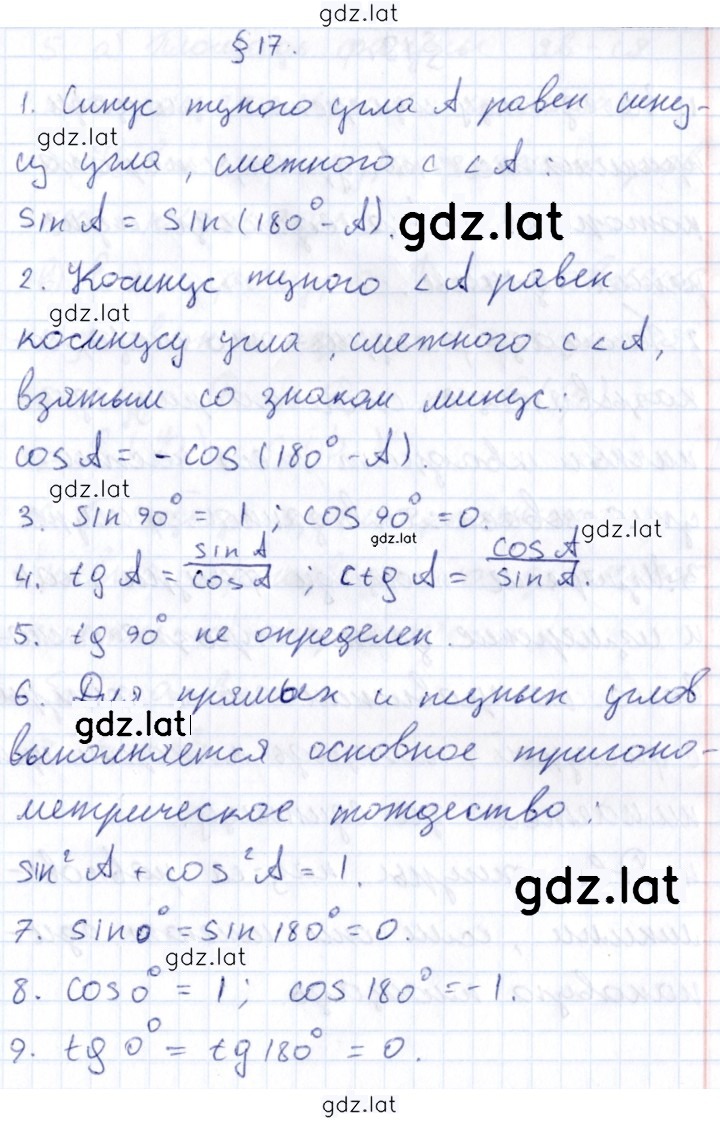 gdz.lat
§ 17.
1. Синус тупого угла A равен сину-
gdz.lat
су угла, смежного с ∠A:
sin A = sin(180° - A).
gdz.lat
2. Косинус тупого ∠A равен
gdz.lat
косинусу угла, смежного с ∠A,
взятым со знаком минус:
cos A = - cos(180° - A).
gdz.lat
3. sin 90° = 1; cos 90° = 0.
gdz.lat
gdz.lat
4. tg A = sin A / cos A; ctg A = cos A / sin A.
5. tg 90° не определен.
6. Для прямых и тупых углов
gdz.lat
выполняется основное тригоно-
метрическое тождество:
sin² A + cos² A = 1.
gdz.lat
7. sin 0° = sin 180° = 0.
gdz.lat
8. cos 0° = 1; cos 180° = -1.
9. tg 0° = tg 180° = 0.
gdz.lat